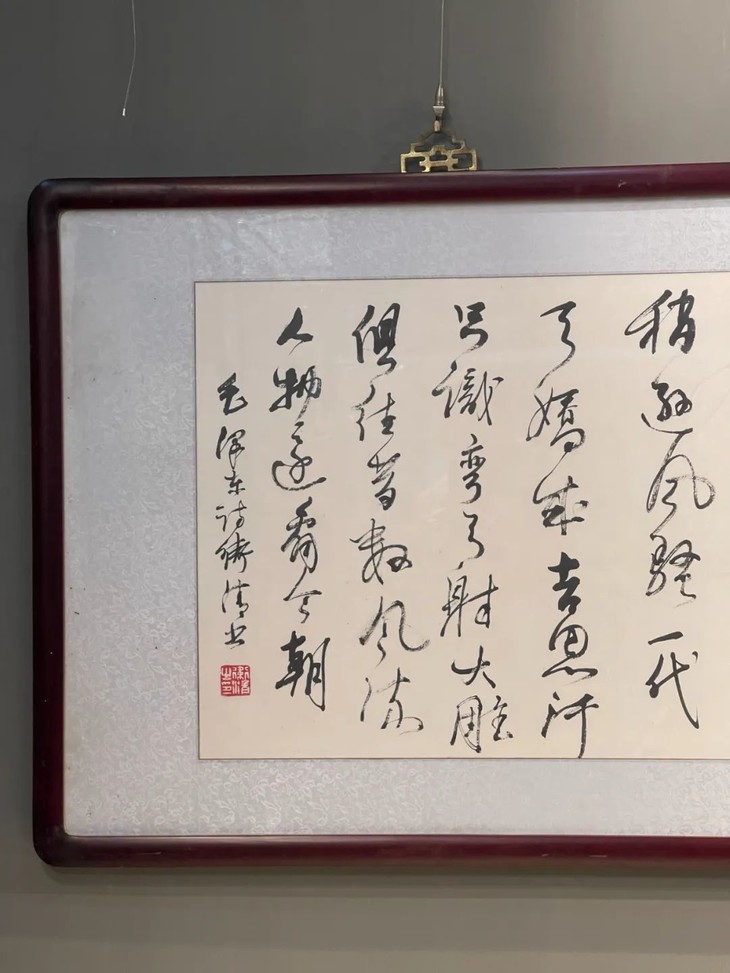 稍逊风骚一代
天嬌成吉思汗
只識弯弓射大雕
俱往昔数风流
人物还看今朝
毛泽东诗衛清书